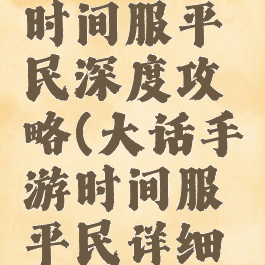 时间服平
民深度攻
略(大话手
游时间服
平民详细